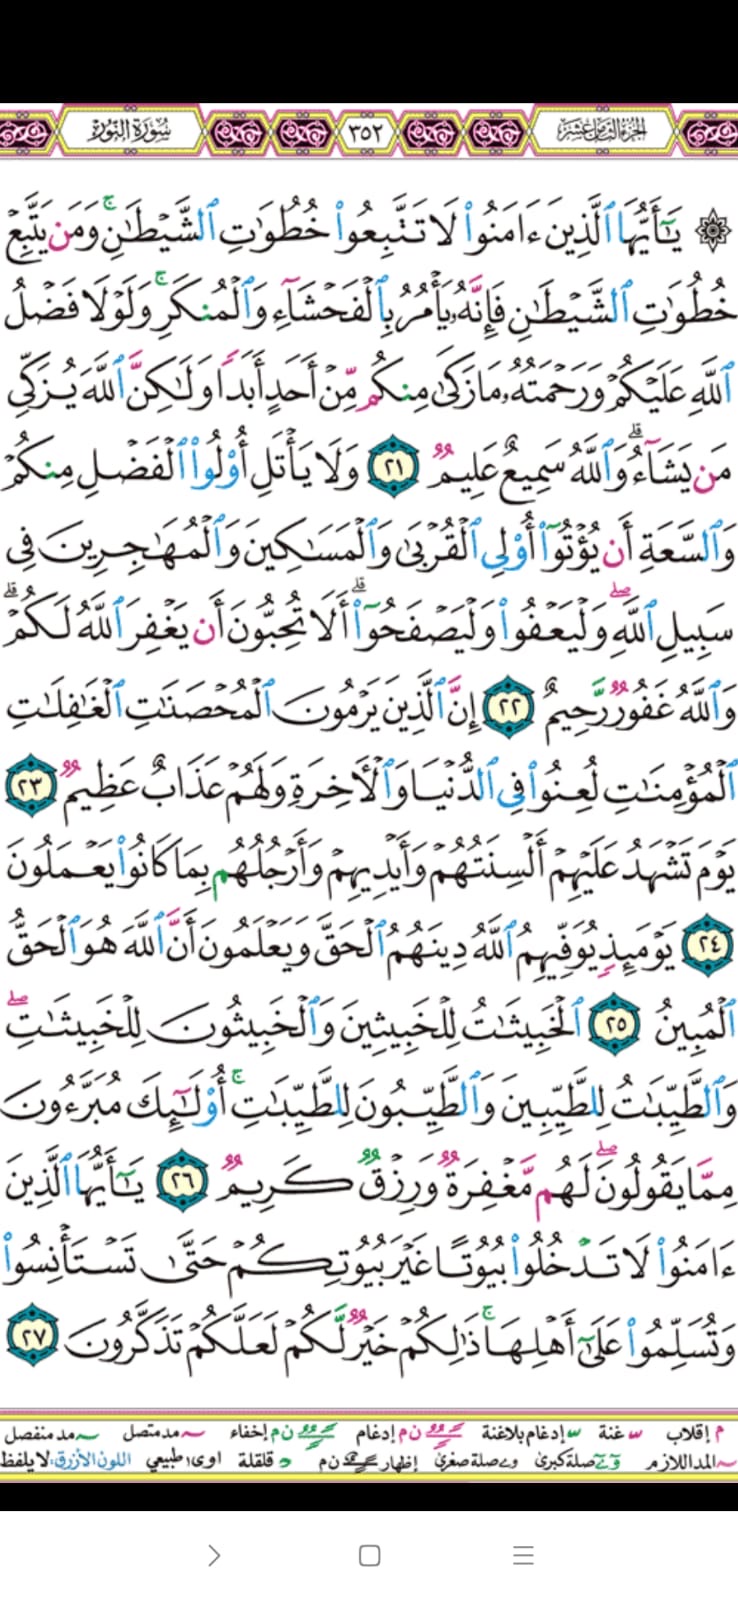 سُورَةُ النُّورِ ٣٥٢ الجُزْءُ الثَّامِنَ عَشَرَ
۞ يَٰٓأَيُّهَا ٱلَّذِينَ ءَامَنُوا۟ لَا تَتَّبِعُوا۟ خُطُوَٰتِ ٱلشَّيْطَٰنِ ۚ وَمَن يَتَّبِعْ
خُطُوَٰتِ ٱلشَّيْطَٰنِ فَإِنَّهُۥ يَأْمُرُ بِٱلْفَحْشَآءِ وَٱلْمُنكَرِ ۚ وَلَوْلَا فَضْلُ
ٱللَّهِ عَلَيْكُمْ وَرَحْمَتُهُۥ مَا زَكَىٰ مِنكُم مِّنْ أَحَدٍ أَبَدًا وَلَٰكِنَّ ٱللَّهَ يُزَكِّى
مَن يَشَآءُ ۗ وَٱللَّهُ سَمِيعٌ عَلِيمٌ ٢١ وَلَا يَأْتَلِ أُو۟لُوا۟ ٱلْفَضْلِ مِنكُمْ
وَٱلسَّعَةِ أَن يُؤْتُوٓا۟ أُو۟لِى ٱلْقُرْبَىٰ وَٱلْمَسَٰكِينَ وَٱلْمُهَٰجِرِينَ فِى
سَبِيلِ ٱللَّهِ ۖ وَلْيَعْفُوا۟ وَلْيَصْفَحُوٓا۟ ۗ أَلَا تُحِبُّونَ أَن يَغْفِرَ ٱللَّهُ لَكُمْ ۗ
وَٱللَّهُ غَفُورٌ رَّحِيمٌ ٢٢ إِنَّ ٱلَّذِينَ يَرْمُونَ ٱلْمُحْصَنَٰتِ ٱلْغَٰفِلَٰتِ
ٱلْمُؤْمِنَٰتِ لُعِنُوا۟ فِى ٱلدُّنْيَا وَٱلْءَاخِرَةِ وَلَهُمْ عَذَابٌ عَظِيمٌ ٢٣
يَوْمَ تَشْهَدُ عَلَيْهِمْ أَلْسِنَتُهُمْ وَأَيْدِيهِمْ وَأَرْجُلُهُم بِمَا كَانُوا۟ يَعْمَلُونَ
٢٤ يَوْمَئِذٍ يُوَفِّيهِمُ ٱللَّهُ دِينَهُمُ ٱلْحَقَّ وَيَعْلَمُونَ أَنَّ ٱللَّهَ هُوَ ٱلْحَقُّ
ٱلْمُبِينُ ٢٥ ٱلْخَبِيثَٰتُ لِلْخَبِيثِينَ وَٱلْخَبِيثُونَ لِلْخَبِيثَٰتِ ۖ
وَٱلطَّيِّبَٰتُ لِلطَّيِّبِينَ وَٱلطَّيِّبُونَ لِلطَّيِّبَٰتِ ۚ أُو۟لَٰٓئِكَ مُبَرَّءُونَ
مِمَّا يَقُولُونَ ۖ لَهُم مَّغْفِرَةٌ وَرِزْقٌ كَرِيمٌ ٢٦ يَٰٓأَيُّهَا ٱلَّذِينَ
ءَامَنُوا۟ لَا تَدْخُلُوا۟ بُيُوتًا غَيْرَ بُيُوتِكُمْ حَتَّىٰ تَسْتَأْنِسُوا۟
وَتُسَلِّمُوا۟ عَلَىٰٓ أَهْلِهَا ۚ ذَٰلِكُمْ خَيْرٌ لَّكُمْ لَعَلَّكُمْ تَذَكَّرُونَ ٢٧
م إقلاب غنة إدغام بلاغنة ن م إدغام ن م إخفاء مد متصل مد منفصل
المد اللازم صلة كبرى و ے صلة صغرى إظهار ن م قلقلة اوى طبيعي اللون الأزرق: لا يلفظ